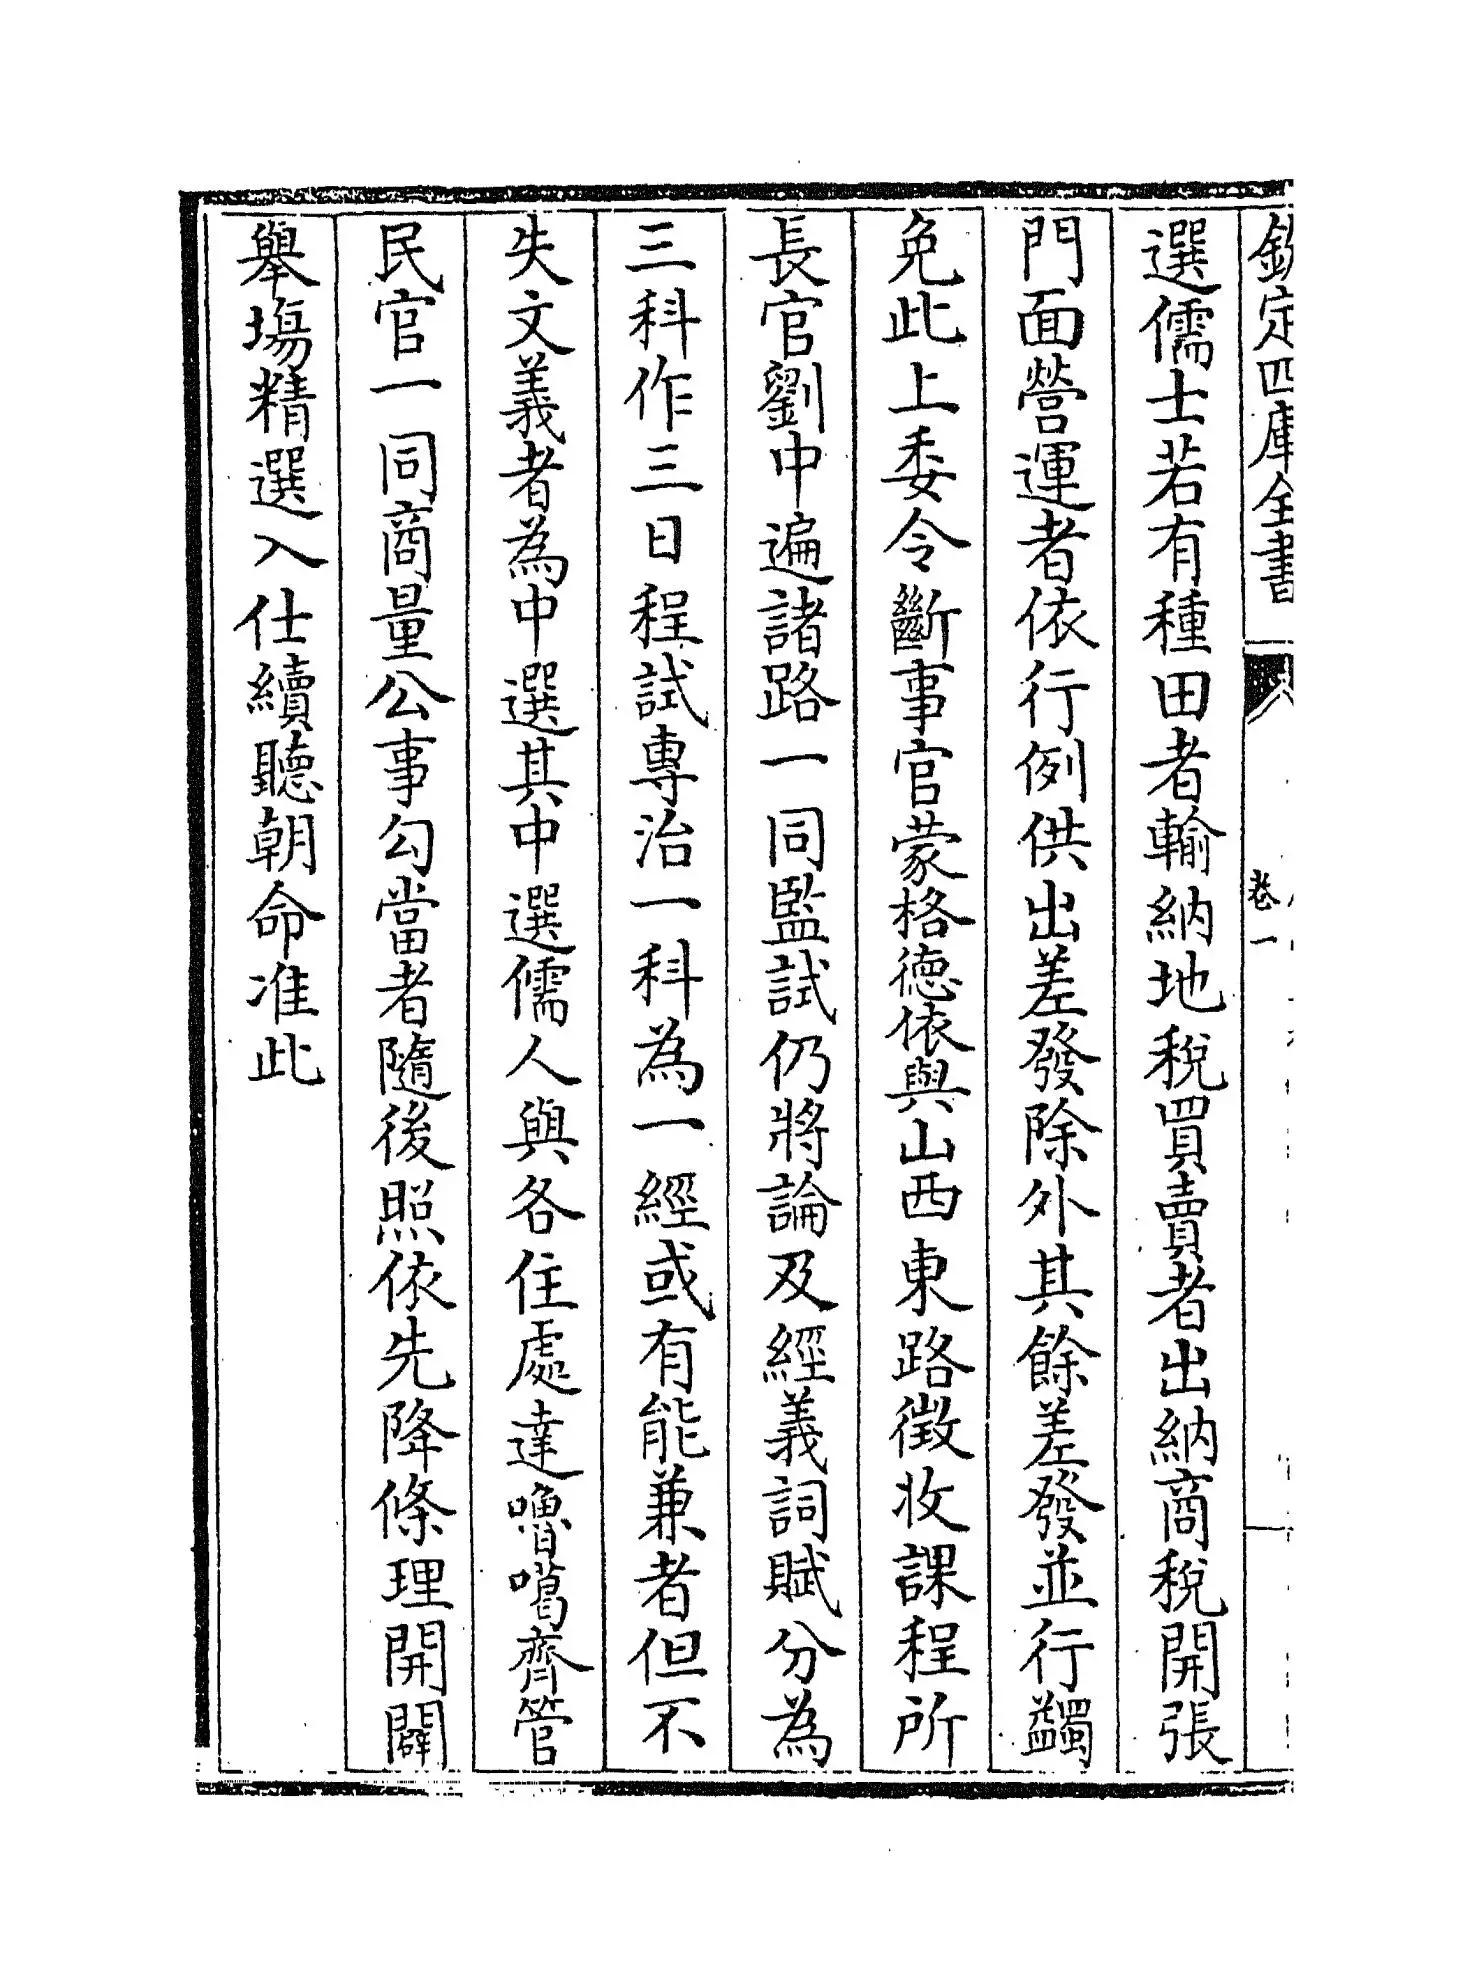 欽定四庫全書
卷一
選儒士若有種田者輸納地稅買賣者出納商稅開張
門面營運者依行例供出差發除外其餘差發並行蠲
免此上委令斷事官蒙格德依與山西東路徴收課程所
長官劉中遍諸路一同監試仍將論及經義詞賦分為
三科作三日程試專治一科為一經或有能兼者但不
失文義者為中選其中選儒人與各住處達嚕噶齊管
民官一同商量公事勾當者隨後照依先降條理開闢
舉塲精選入仕續聽朝命准此